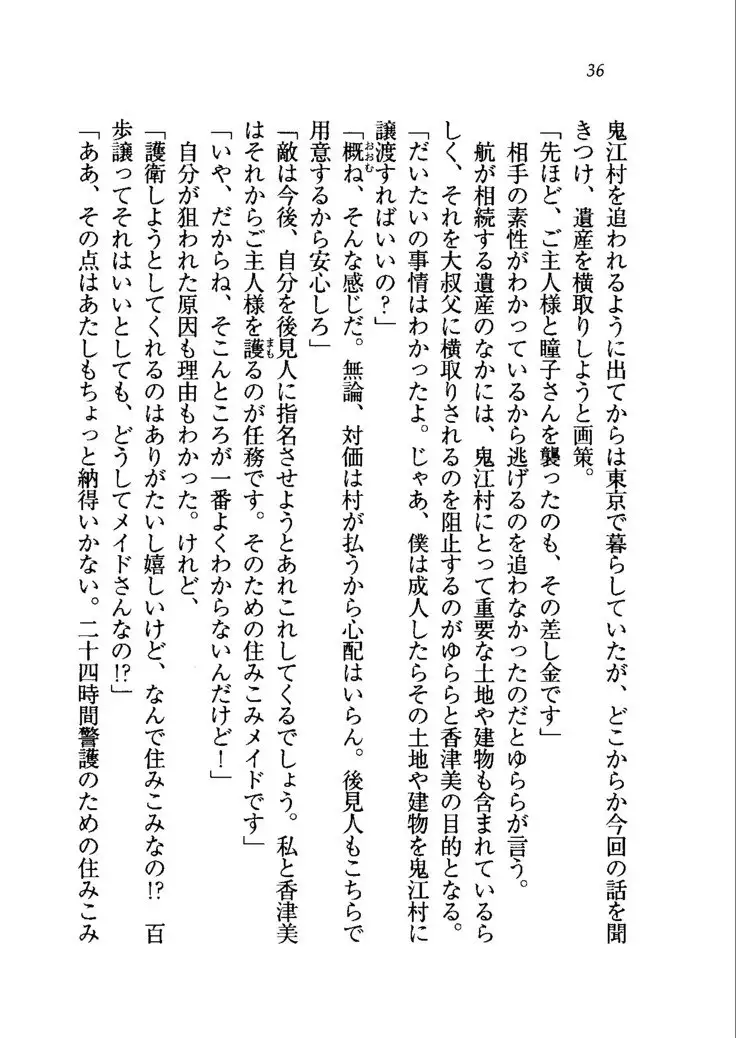 36
鬼江村を追われるように出てからは東京で暮らしていたが、どこからか今回の話を聞
きつけ、遺産を横取りしようと画策。
「先ほど、ご主人様と瞳子さんを襲ったのも、その差し金です」
相手の素性がわかっているから逃げるのを追わなかったのだとゆららが言う。
航が相続する遺産のなかには、鬼江村にとって重要な土地や建物も含まれているら
しく、それを大叔父に横取りされるのを阻止するのがゆららと香津美の目的となる。
「だいたいの事情はわかったよ。じゃあ、僕は成人したらその土地や建物を鬼江村に
譲渡すればいいの？」
「概ね、そんな感じだ。無論、対価は村が払うから心配はいらん。後見人もこちらで
おおむ
用意するから安心しろ」
「敵は今後、自分を後見人に指名させようとあれこれしてくるでしょう。私と香津美
はそれからご主人様を護るのが任務です。そのための住みこみメイドです」
まも
「いや、だからね、そこんところが一番よくわからないんだけど！」
自分が狙われた原因も理由もわかった。けれど、
「護衛しようとしてくれるのはありがたいし嬉しいけど、なんで住みこみなの!?　百
歩譲ってそれはいいとしても、どうしてメイドさんなの!?」
「ああ、その点はあたしもちょっと納得いかない。二十四時間警護のための住みこみ